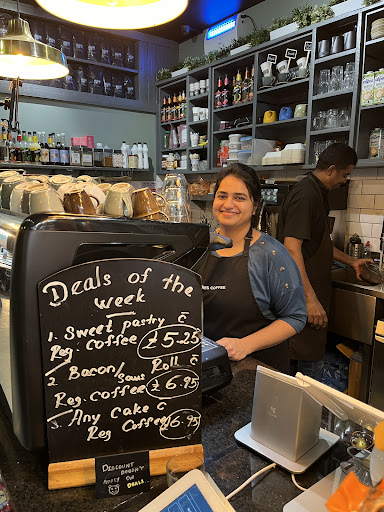 Deals of the
week
1. Sweet pastry c̄
Reg. Coffee £5.25
2. Bacon/Saus Roll c̄
Reg. Coffee £6.95
3. Any Cake c̄
Reg Coffee £6.95
DISCOUNT DOESN'T
APPLY ON
DEALS.
COFFEE